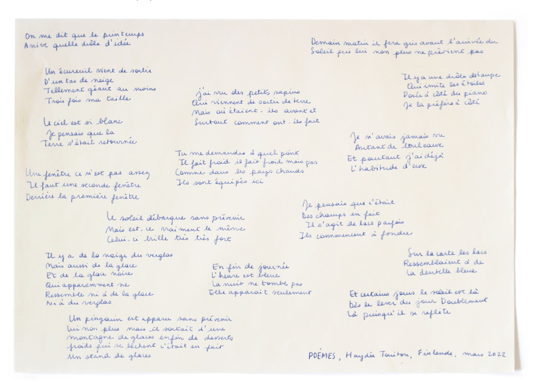 On me dit que le printemps
Arrive quelle drôle d'idée
Un écureuil vient de sortir
D'un tas de neige
Tellement géant au moins
Trois fois ma taille
Le ciel est si blanc
Je pensais que la
Terre s'était retournée
Une fenêtre ce n'est pas assez
Il faut une seconde fenêtre
Derrière la première fenêtre
j'ai vu des petits sapins
Qui viennent de sortir de terre
Mais où étaient-ils avant et
Surtout comment ont-ils fait
Tu me demandes à quel point
Il fait froid il fait froid mais pas
Comme dans les pays chauds
Ils sont équipés ici
Le soleil débarque sans prévenir
Mais est-ce vraiment le même
Celui-ci brille très très fort
Il y a de la neige du verglas
Mais aussi de la glace
Et de la glace noire
Qui apparemment ne
Ressemble ni à de la glace
Ni à du verglas
En fin de journée
L'heure est bleue
La nuit ne tombe pas
Elle apparaît seulement
Un pingouin est apparu sans prévenir
Lui non plus mais il sortait d'une
montagne de glaces enfin de desserts
froids qui se lèchent c'était en fait
Un stand de glaces
Demain matin il fera gris avant l'arrivée du
Soleil qui lui non plus ne prévient pas
Il y a une drôle de lampe
Qui imite les étoiles
Posée à côté du piano
Je la préfère à côté
Je n'avais jamais vu
Autant de couleurs
Et pourtant j'ai déjà
L'habitude d'eux
Je pensais que c'était
Des champs en fait
Il s'agit de lacs parfois
Ils commencent à fondre
Sur la carte les lacs
Ressemblaient à de
La dentelle bleue
Et certains jours le soleil est là
Dès le lever du jour Doublement
Là puisqu'il se reflète
POÈMES, Haydée Touitou, Finlande, mars 2022